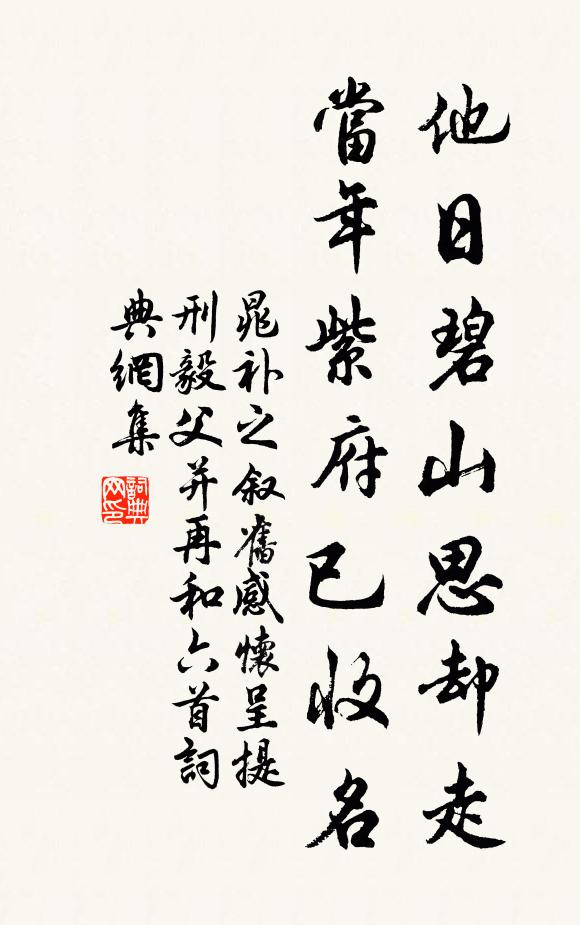 他日碧山思却走
當年紫府已收名
晁补之叙舊感懷呈提
刑毅父并再和六首詞
典網集
詞典网印